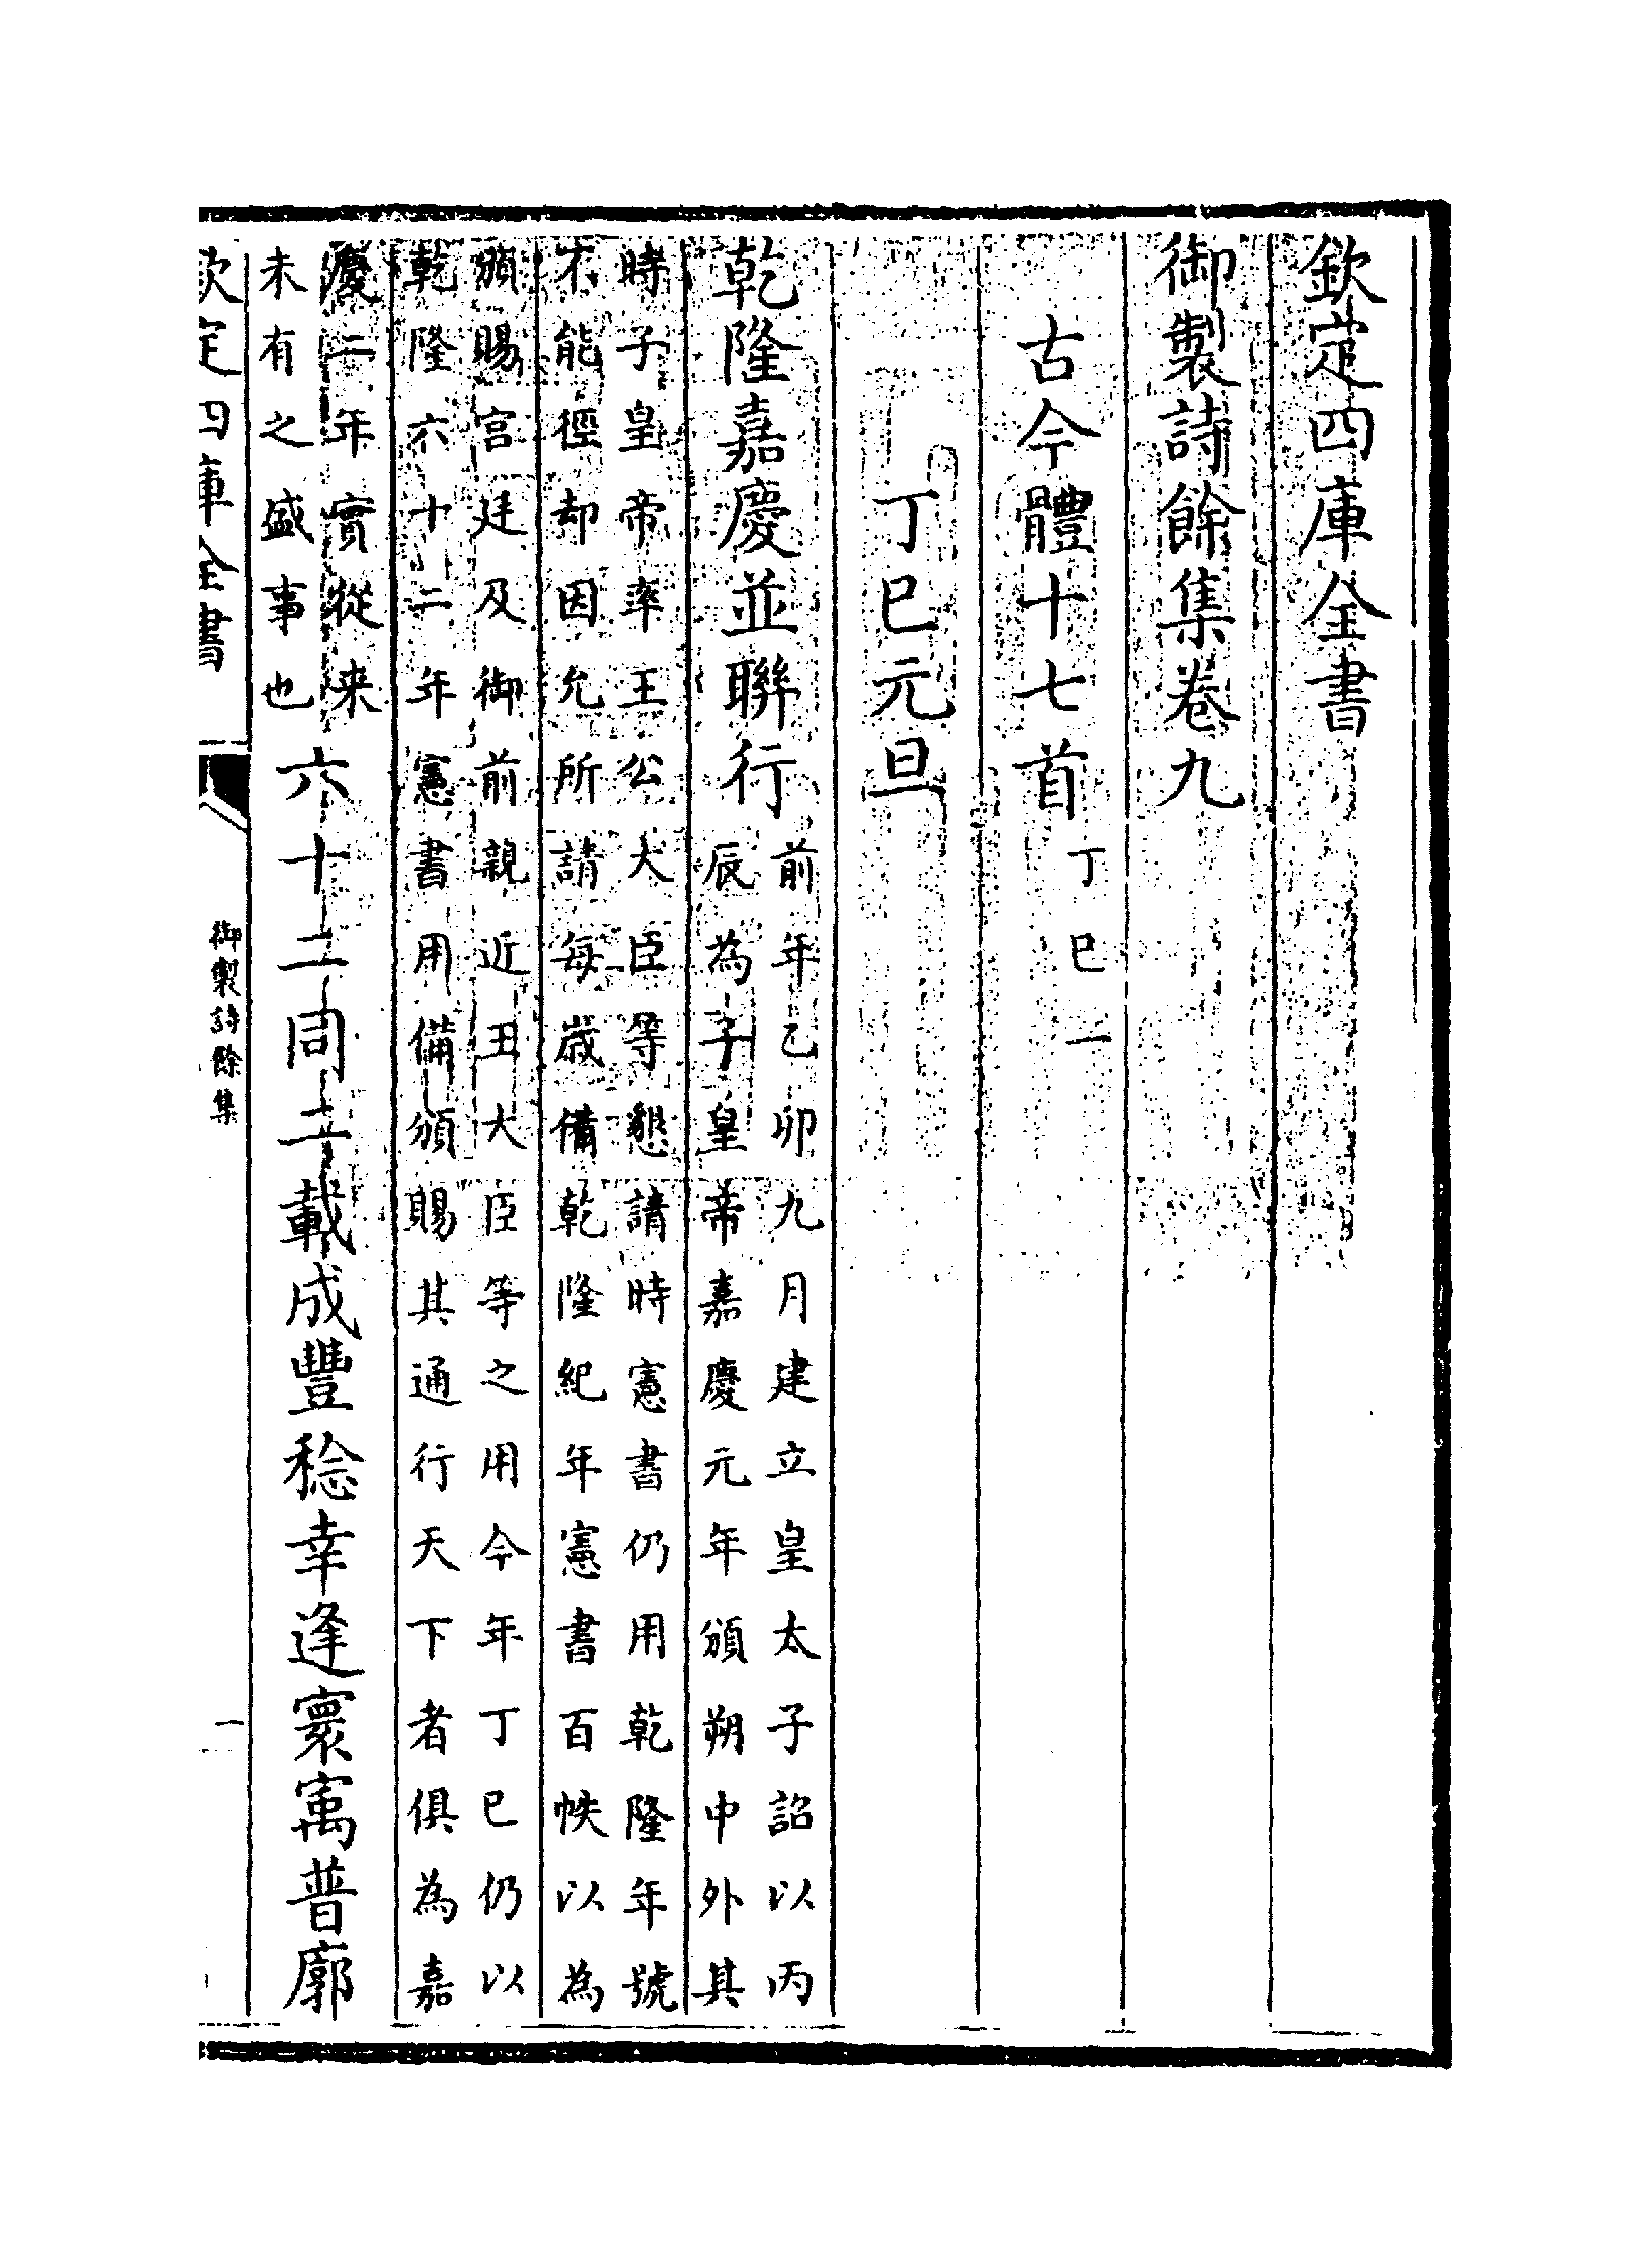 欽定四庫全書
御製詩餘集卷九
古今體十七首丁巳一
丁巳元旦
乾隆嘉慶並聯行前年乙卯九月建立皇太子詔以丙
辰為子皇帝嘉慶元年頒朔中外其
時子皇帝率王公大臣等懇請時憲書仍用乾隆年號
不能徑却因允所請每歲備乾隆紀年憲書百帙以為
頒賜宮廷及御前親近丑大臣等之用今年丁巳仍以
乾隆六十二年憲書用備頒賜其通行天下者俱為嘉
慶二年實從来
未有之盛事也六十二同二載成豐稔幸逢寰㝢普廓
欽定四庫全書
御製詩餘集
一